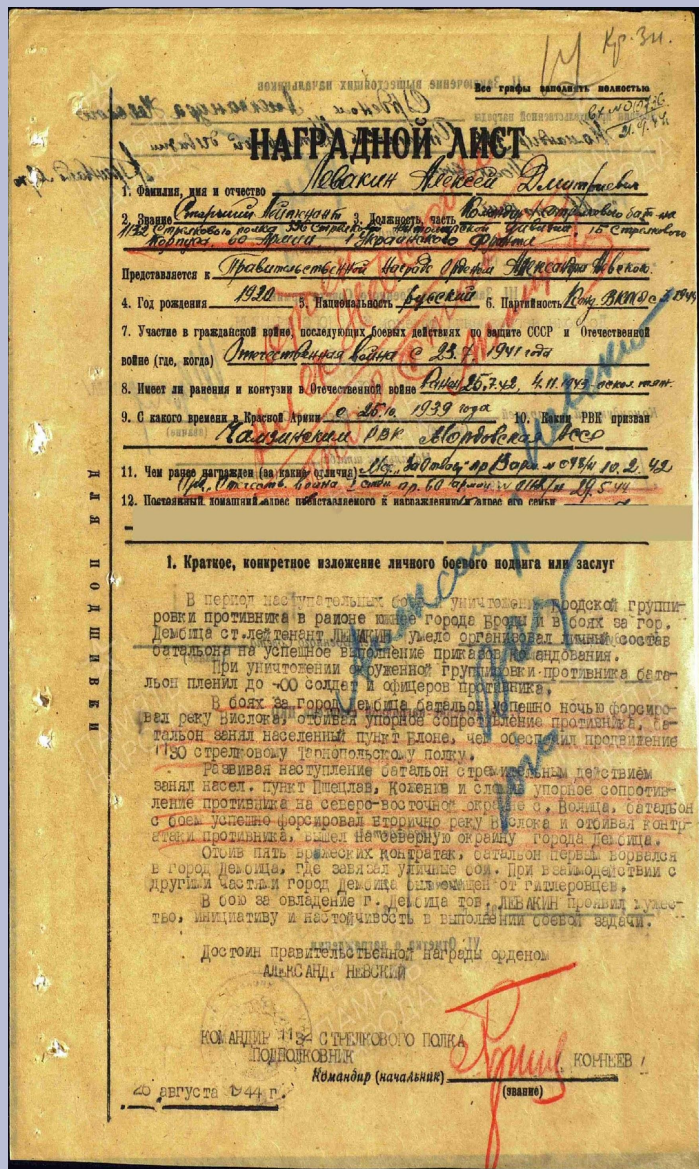 Кр. Зн.
Все графы заполнять полностью
НАГРАДНОЙ ЛИСТ
1. Фамилия, имя и отчество Левакин Алексей Дмитриевич
2. Звание Старший Лейтенант 3. Должность, часть Командир стрелкового бат-на
1132 Стрелкового полка 336 Стрелковой Житомирской дивизии 15 Стрелкового
Корпуса 60 Армии 1 Украинского Фронта
Представляется к Правительственной награде Орденом Александра Невского
4. Год рождения 1920 5. Национальность русский 6. Партийность Канд. ВКП(б) с 1944
7. Участие в гражданской войне, последующих боевых действиях по защите СССР и Отечественной
войне (где, когда) Отечественная война с 23.7.1941 года
8. Имеет ли ранения и контузии в Отечественной войне Ранен 25.7.42, 4.11.1943
9. С какого времени в Красной Армии с 25.10.1939 года 10. Каким РВК призван
Чамзинским РВК Мордовская АССР
11. Чем ранее награжден (за какие отличия) Мед. "За Отвагу" пр. 10.2.42
Орд. Отечеств. Война степ. пр. 60 армии 29.5.44
12. Постоянный домашний адрес представляемого к награждению и адрес его семьи
ДЛЯ ПОДШИВКИ
1. Краткое, конкретное изложение личного боевого подвига или заслуг
В период наступательных уничтожению Бродской группи-
ровки противника в районе южнее города Броды и в боях за гор.
Дембица ст.лейтенант ЛЕВАКИН умело организовал личный состав
батальона на успешное выполнение приказов командования.
При уничтожении окруженной группировки противника бата-
льон пленил до 00 солдат и офицеров противника.
В боях за город Дембица батальон успешно ночью форсиро-
вал реку Вислока, отбивая упорное сопротивление противника, ба-
тальон занял населенный пункт Блоне, чем обеспечил продвижение
1130 стрелковому Тарнопольскому полку.
Развивая наступление батальон стремительным действием
занял насел. пункт Пшецлав, Коженив и сломив упорное сопротив-
ление противника на северо-восточной окраине с. Волица, батальон
с боем успешно форсировал вторично реку Вислока и отбивая контр-
атаки противника, вышел на северную окраину города Дембица.
Отбив пять вражеских контратак, батальон первым ворвался
в город Дембица, где завязал уличные бои. При взаимодействии с
другими частями город Дембица был очищен от гитлеровцев.
В бою за овладение г. Дембица тов. ЛЕВАКИН проявил мужес-
тво, инициативу и настойчивость в выполнении боевой задачи.
Достоин правительственной награды орденом
АЛЕКСАНДР НЕВСКИЙ
КОМАНДИР 1132 СТРЕЛКОВОГО ПОЛКА
ПОДПОЛКОВНИК КОРНЕЕВ
Командир (начальник)
(звание)
26 августа 1944 г.